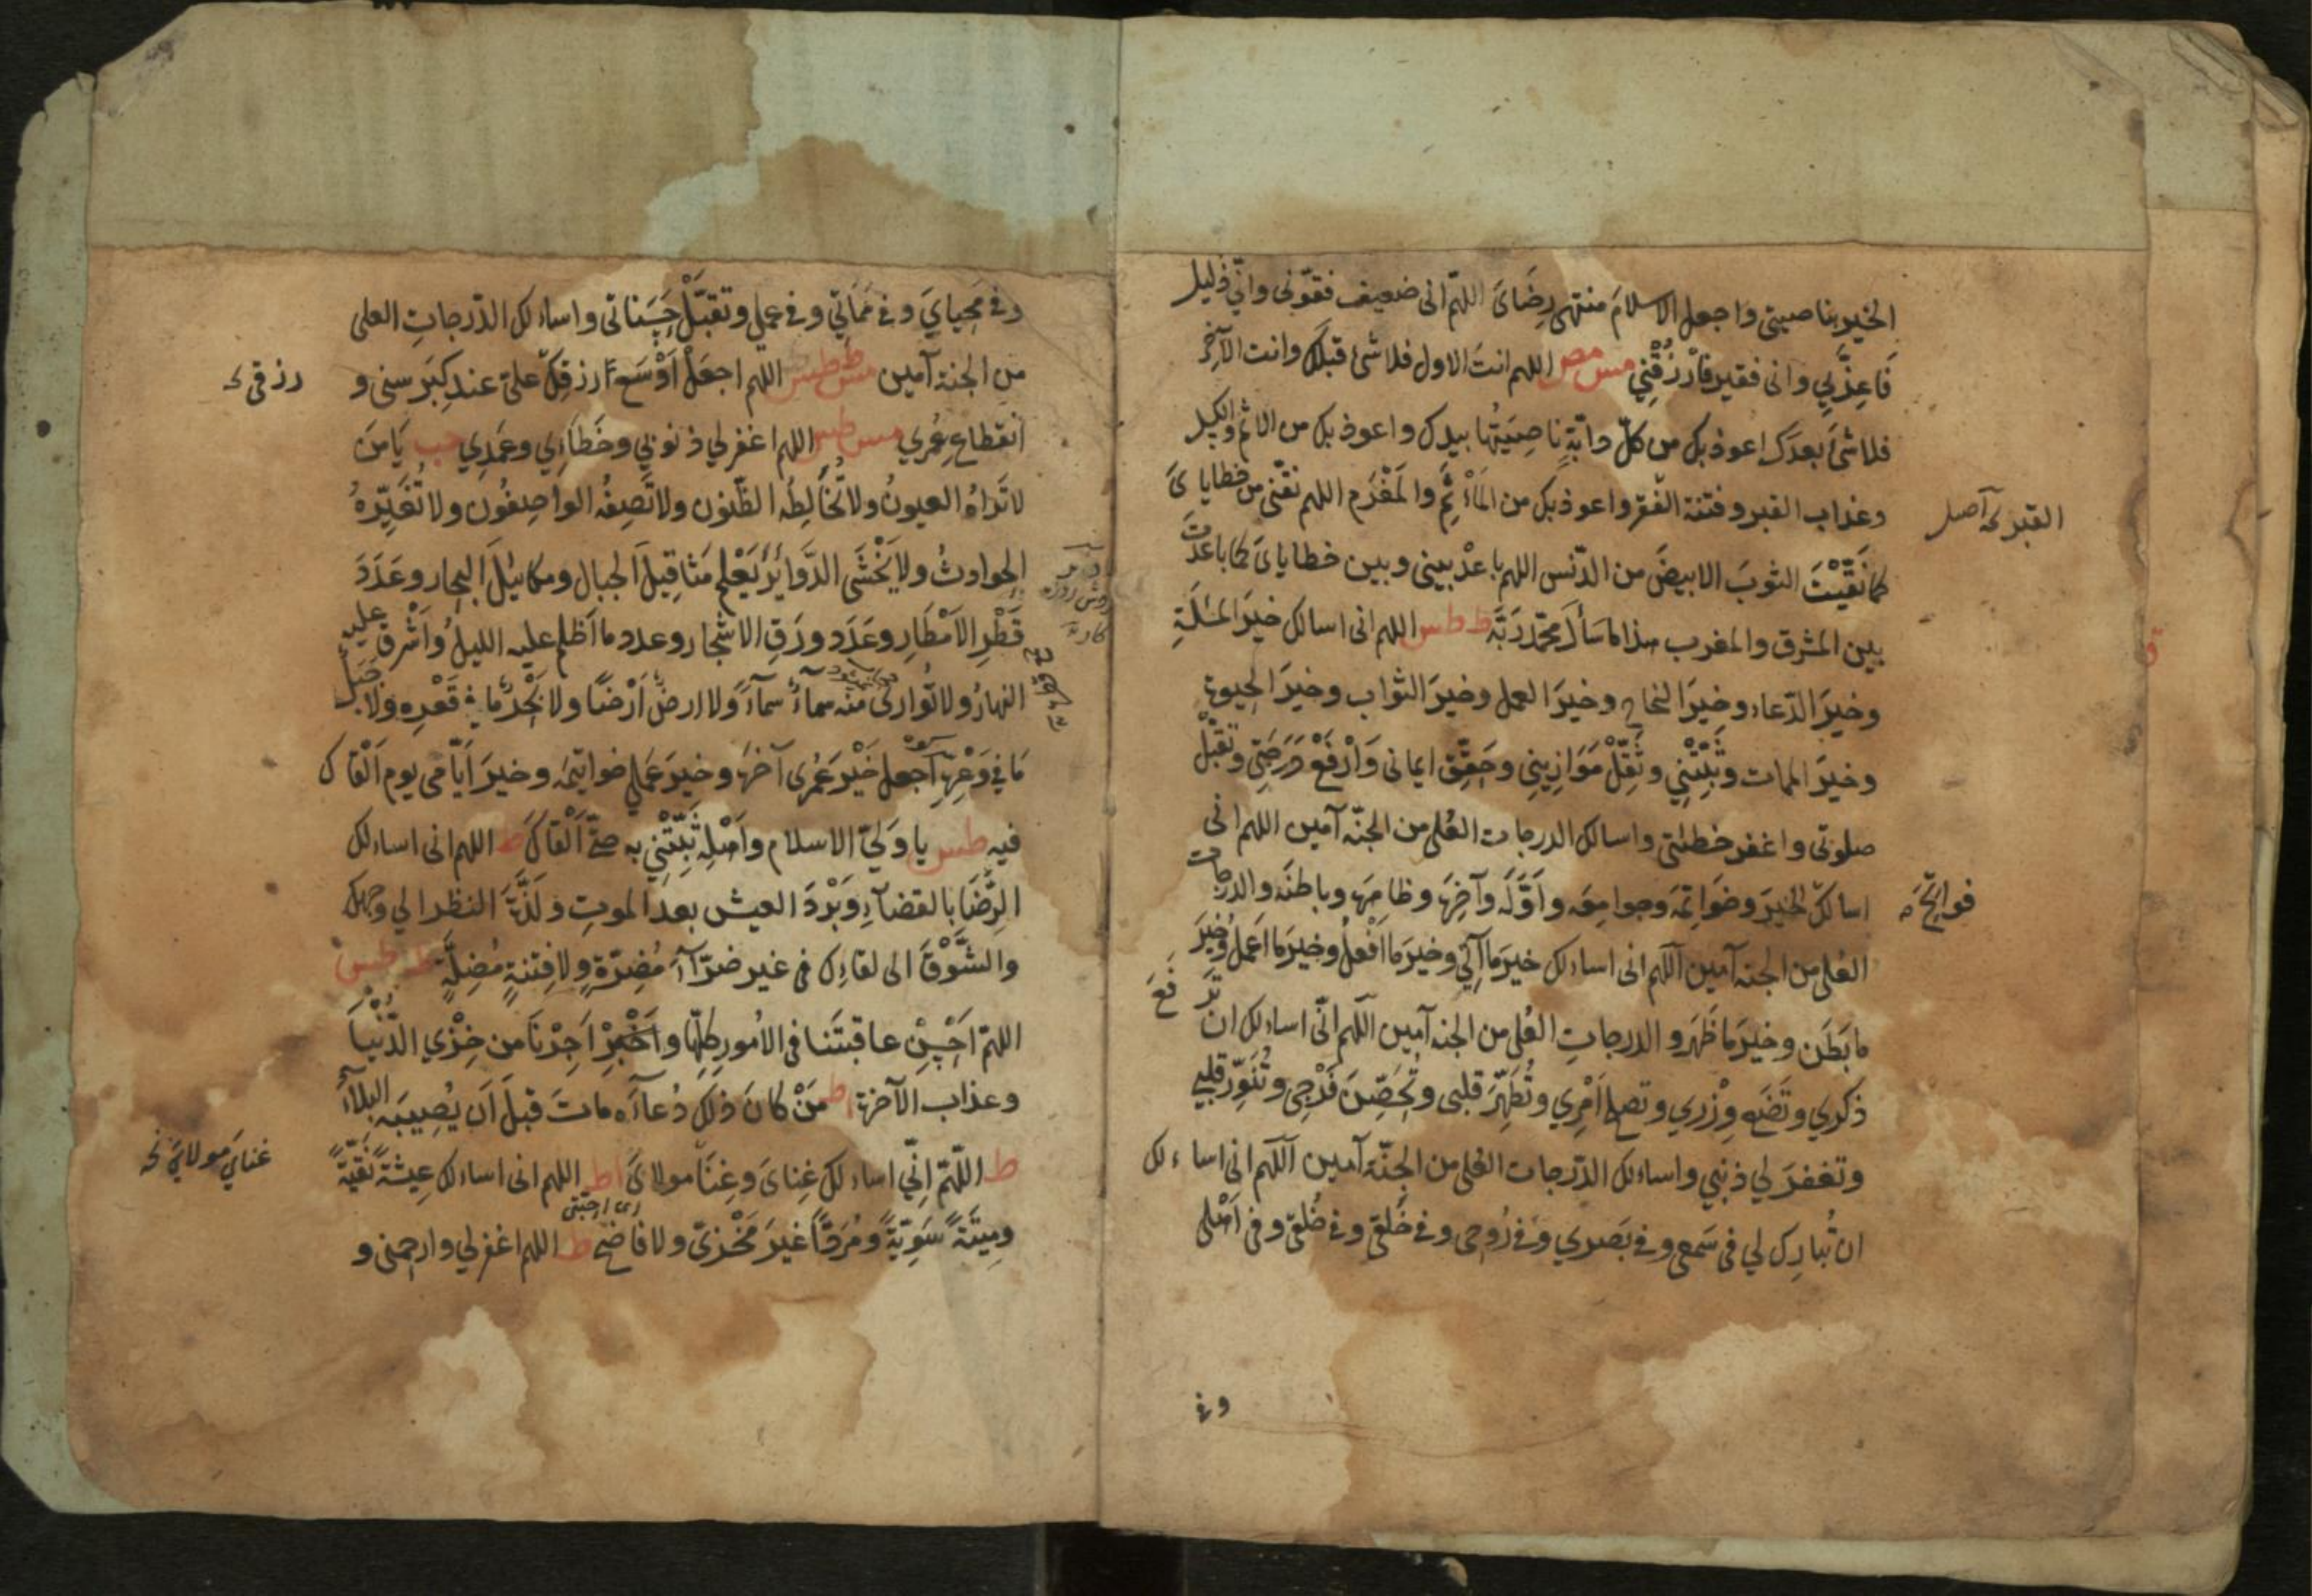 الخير بناصيتي واجعل الاسلامَ منتهى رِضَائ اللهم انى ضعيف فقوّنى وانّي ذليل
فَاعِزَّنِي وانى فقير فَارْزُقْنِي مس مص اللهم انتَ الاول فلا شئ قبلك وانت الآخِر
فلا شئَ بعدَك اعوذ بك من كلّ دابّةٍ ناصِيَتُها بيدك واعوذ بك من الاثم والكسل
وعذاب القبر وفتنة الفقر واعوذ بك من المَأْثَمِ والمَغْرَم اللهم نقّنى من خطاياىَ
القبر آصل
كما نَقَّيْتَ الثوبَ الابيضَ من الدّنس اللهم باعدْ بينى وبين خطاياىَ كما باعدتَ
بين المشرق والمغرب هذا ما سَأَلَ محمّد رَبَّهُ ط طس اللهم انى اسالك خيرَ المَسْئَلَةِ
وخيرَ الدّعاء وخيرَ النجاح وخيرَ العمل وخيرَ الثواب وخيرَ الحيوة
وخيرَ الممات وثَبِّتْنِي وثَقِّلْ مَوَازِيني وحَقِّق ايمانى وَارْفَعْ دَرَجَتِي وتَقَبَّلْ
صلوتى واغفر خطئتى واسالك الدرجات العُلى من الجنّة آمين اللهم انى
اسالك الخيرَ وخَوَاتِمَه وجوامِعَه واَوَّلَه وآخِرَه وظاهِرَه وباطنَه والدرجات
فواتِحَ
العُلى من الجنة آمين اللّهم انى اساءلك خيرَ ما آتِي وخيرَ ما اَفْعلُ وخيرَ ما اَعملُ وخيرَ
ما بَطَنَ وخيرَ ما ظَهَرَ والدرجاتِ العُلى من الجنة آمين اللّهم انّى اساءلك ان تَرفَعَ
ذكري وتَضَعَ وِزْري وتصلح اَمْرِي وتُطَهِّرَ قلبى وتُحَصِّنَ فَرْجى وتُنَوِّرَ قلبي
وتغفرَ لي ذنبي واساءلك الدّرجات العُلى من الجنّة آمين اللّهم انى اساءلك
ان تُبارِك لي فى سَمعى وفى بَصرى وفى رُوحى وفى خَلقى وفى خُلقى وفى اَهلى
وفى
وفى مَحيايَ وفى مَمَاتي وفى عملي وتقبَّلْ حَسَناتى واساءلك الدّرجاتِ العلى
من الجنة آمين مس ط طس اللهم اجعَلْ اَوْسَعَ ارزقِكَ علىّ عند كِبَر سنى و
رزقى
انقطاع عُمُرِي مس طس اللهم اغفر لي ذنوبي وخَطَاءِي وعَمَدِي حب يَا مَن
لا تَرَاهُ العيونُ ولا تُخَالِطُه الظّنون ولا تَصِفُه الواصِفُون ولا تُغَيِّرُهُ
الحوادثُ ولا يَخْشَى الدَّوَائرَ يَعْلم مَثاقِيلَ الجبال ومكائيلَ البحار وعَدَدَ
قَطْرِ الاَمْطَارِ وعَدَدَ ورَقِ الاشجار وعدد ما اَظلم عليه الليلُ واَشْرق عليه
النهارُ ولا تُوَارى منه سماءٌ سماءً ولا ارضٌ اَرْضًا ولا بَحْرٌ ما في قَعْرِه ولا جَبَل
مَا في وَعْرِه اجعل خَيْرَ عُمُرى آخرَه وخيرَ عَمَلي خواتيمَه وخيرَ اَيّامى يوم اَلْقاك
فيه طس يا وَليَّ الاسلام واَهْلِه ثَبِّتْنِي به حتّى اَلْقاكَ ط اللهم انى اساءلك
الرِّضَا بالقضاءِ وبَرْدَ العيش بعد الموتِ ولَذَّةَ النظر الي وجهك
والشَّوْقَ الى لقاءِك فى غير ضرّاءَ مُضِرّةٍ ولا فِتنةٍ مُضِلَّةٍ ط طس
اللهمّ اَحْسِنْ عاقبتَنا فى الاُمورِ كلِّها و اَجِرْنَا من خِزْيِ الدّنْيَا
وعذاب الآخرة اط مَنْ كانَ ذلك دُعاءَه ماتَ قبلَ اَن يُصِيبَه البلاءُ
ط اللّهمّ اِنّي اساءلك غِنايَ وغِنَا مولايَ اط اللهم انى اساءلك عِيشةً نَقيّةً
غنايَ مولايَ
ومِيتَةً سَوِيّةً ومَرَدًّا غيرَ مَخْزِيّ ولا فاضح ط اللهم اغفر لي وارحمنى و